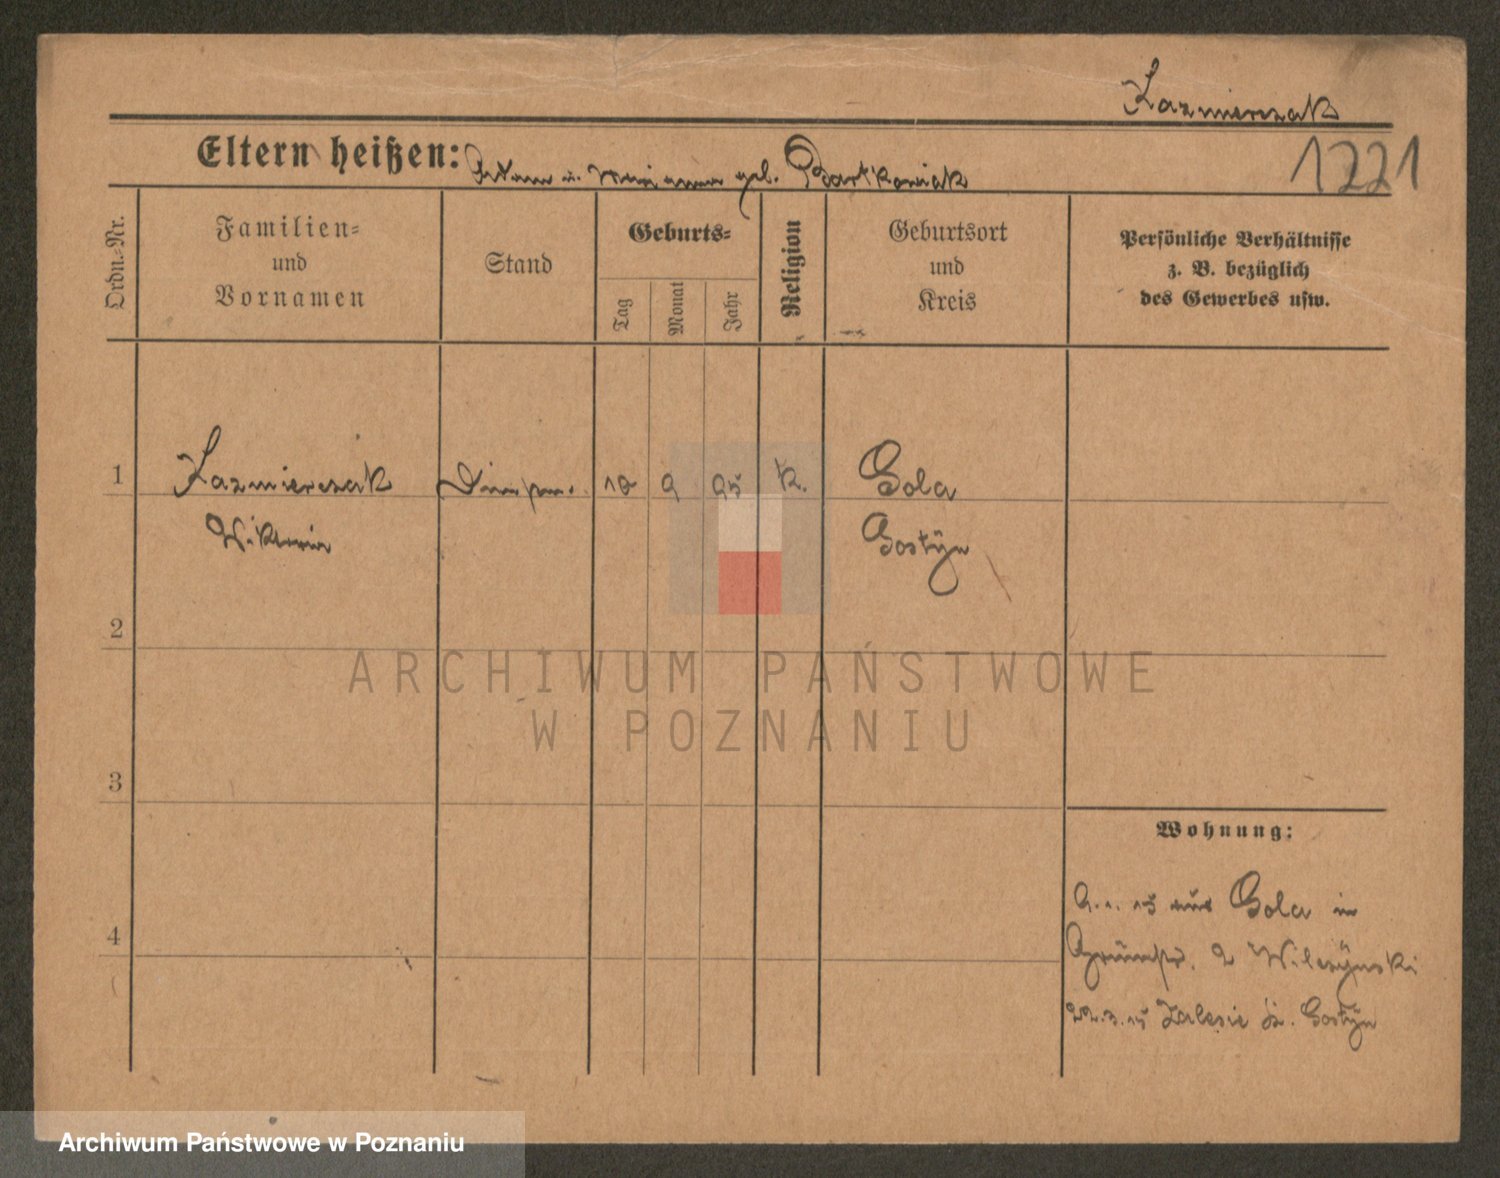 Kazmierczak
Eltern heißen: Adam u. Marianna geb. Bartkowiak
1221
Ordn.-Nr.
Familien-
und
Vornamen
Stand
Geburts-
Tag
Monat
Jahr
Religion
Geburtsort
und
Kreis
Persönliche Verhältnisse
z. B. bezüglich
des Gewerbes usw.
1 Kazmierczak 10 9 95 k. Gola
Wiktoria Gostyn
2
3
4
Wohnung:
15 aus Gola in
2 Wilczynski
22.3.15 Zalesie Kr. Gostyn
ARCHIWUM PAŃSTWOWE
W POZNANIU
Archiwum Państwowe w Poznaniu